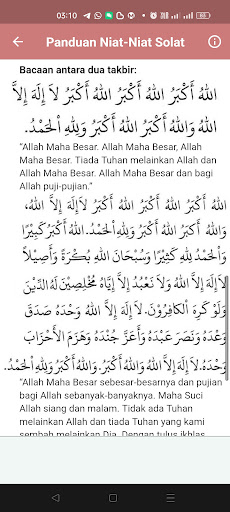 03:10
Panduan Niat-Niat Solat
Bacaan antara dua takbir:
اللهُ أَكْبَرُ اللهُ أَكْبَرُ اللهُ أَكْبَرُ لاَ إِلَهَ إِلاَّ
اللهُ وَاللهُ أَكْبَرُ اللهُ أَكْبَرُ وَلِلهِ الْحَمْدُ.
“Allah Maha Besar. Allah Maha Besar, Allah
Maha Besar. Tiada Tuhan melainkan Allah dan
Allah Maha Besar. Allah Maha Besar dan bagi
Allah puji-pujian.”
اللهُ أَكْبَرُ اللهُ أَكْبَرُ اللهُ أَكْبَرُ لاَإِلَهَ إِلاَّ اللهُ،
وَاللهُ أَكْبَرُ اللهُ أَكْبَرُ وَلِلهِ الْحَمْدُ. اللهُ أَكْبَرُ كَبِيْرًا
وَالْحَمْدُ لِلهِ كَثِيْرًا وَسُبْحَانَ اللهِ بُكْرَةً وَأَصِيْلاً
لاَ إِلَهَ إِلاَّ اللهُ وَلاَ نَعْبُدُ إِلاَّ إِيَّاهُ مُخْلِصِيْنَ لَهُ الدِّيْنَ
وَلَوْ كَرِهَ الْكَافِرُوْنَ. لاَ إِلَهَ إِلاَّ اللهُ وَحْدَهُ صَدَقَ
وَعْدَهُ وَنَصَرَ عَبْدَهُ وَأَعَزَّ جُنْدَهُ وَهَزَمَ الأَحْزَابَ
وَحْدَهُ. لاَ إِلَهَ إِلاَّ اللهُ وَاللهُ أَكْبَرُ. وَاللهُ أَكْبَرُ وَلِلهِ الْحَمْدُ.
“Allah Maha Besar sebesar-besarnya dan pujian
bagi Allah sebanyak-banyaknya. Maha Suci
Allah siang dan malam. Tidak ada Tuhan
melainkan Allah dan tiada Tuhan yang kami
sembah melainkan Dia. Dengan tulus ikhlas